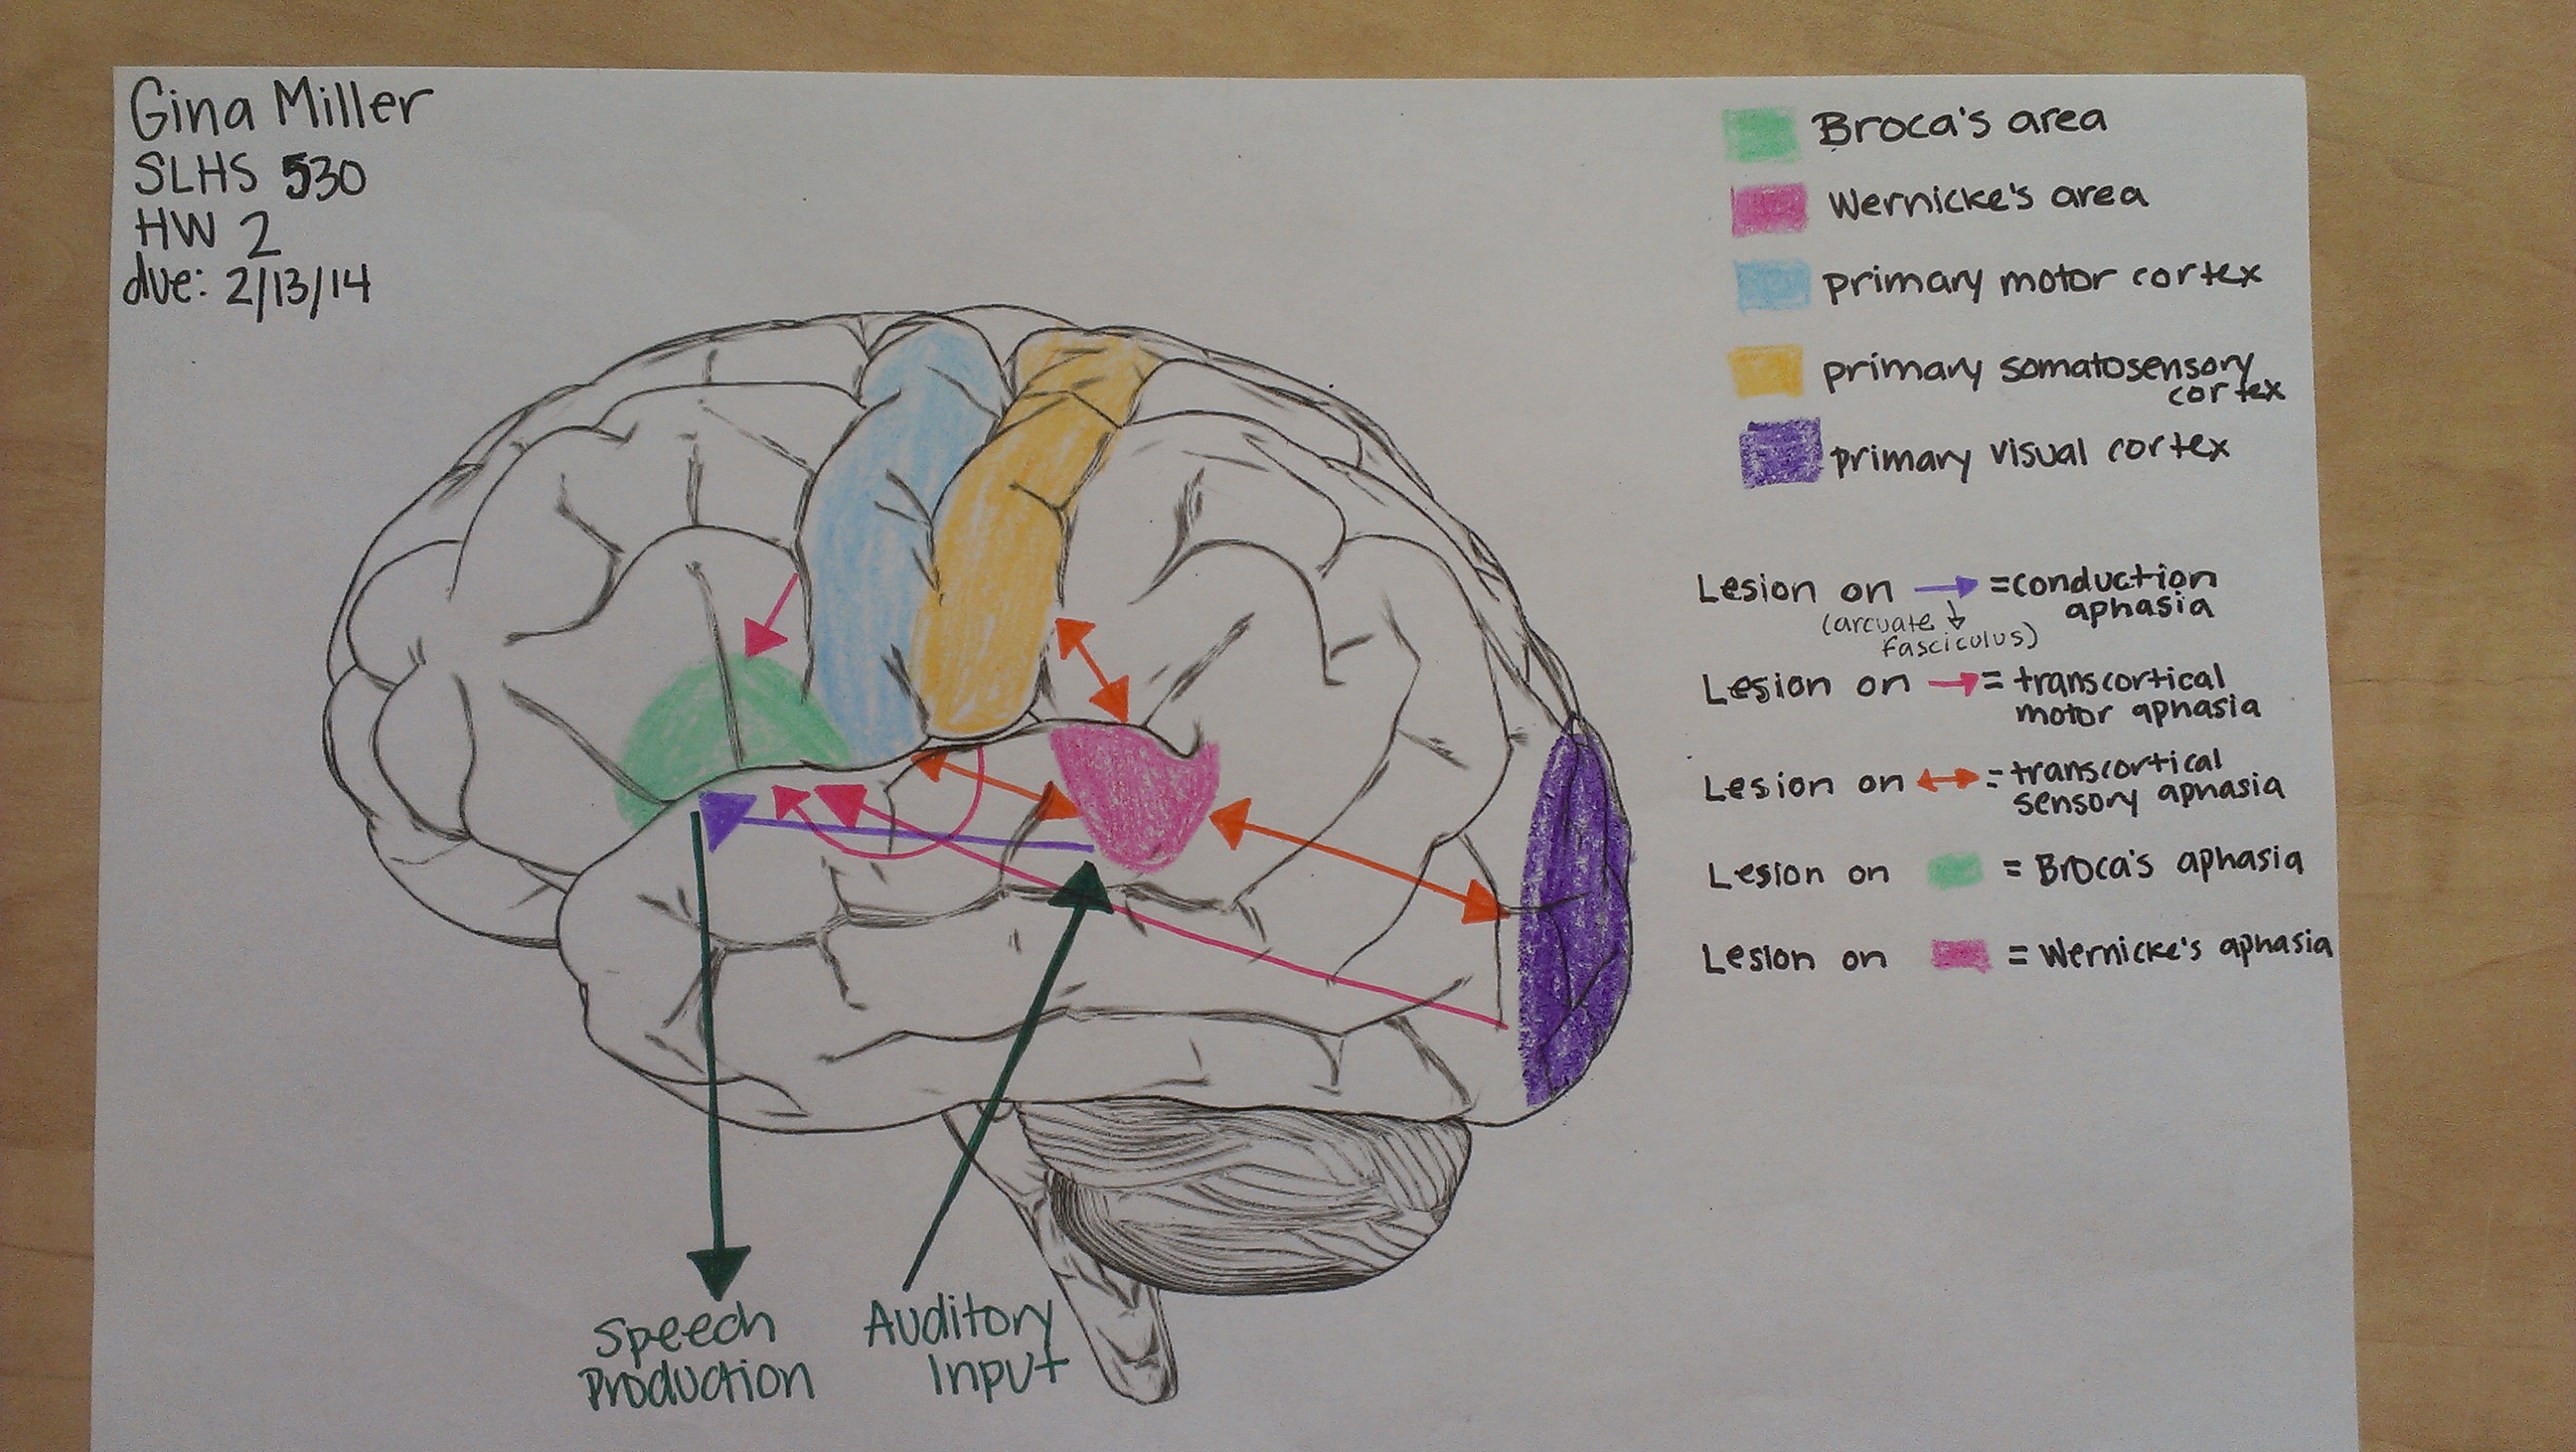 Gina Miller
SLHS 530
HW 2
due: 2/13/14
Broca's area
Wernicke's area
primary motor cortex
primary somatosensory
cortex
primary visual cortex
Lesion on → = conduction
aphasia
(arcuate ↓
fasciculus)
Lesion on → = transcortical
motor aphasia
Lesion on ↔ = transcortical
sensory aphasia
Lesion on = Broca's aphasia
Lesion on = Wernicke's aphasia
Speech
Production
Auditory
Input